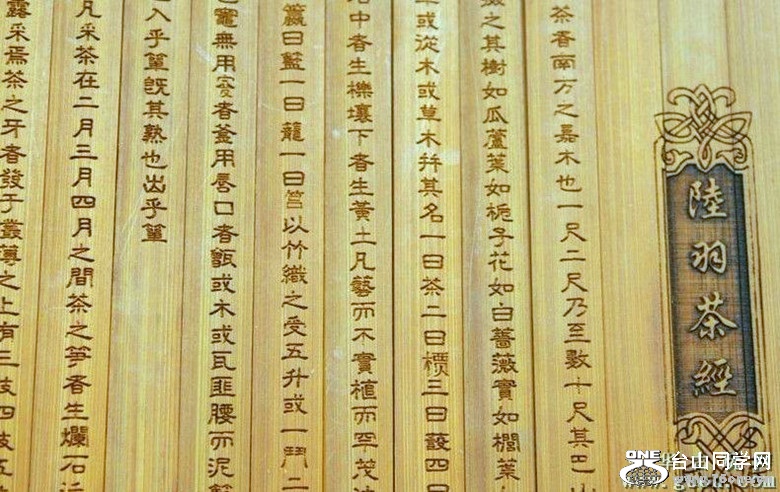 陸羽茶經
茶者南方之嘉木也一尺二尺乃至數十尺其巴山
掇之其樹如瓜蘆葉如梔子花如白薔薇實如櫚葉
或從木或草木并其名一曰茶二曰三曰蔎四曰
中者生櫟壤下者生黃土凡藝而不實植而罕茂法
籯曰籃一曰籠一曰筥以竹織之受五升或一鬥二
竈無用突者釜用唇口者甑或木或瓦匪腰而泥
入乎簞既其熟也出乎簞
凡采茶在二月三月四月之間茶之筍者生爛石沃
露采焉茶之牙者發于叢薄之上有三枝四枝五
ONE 台山同学网